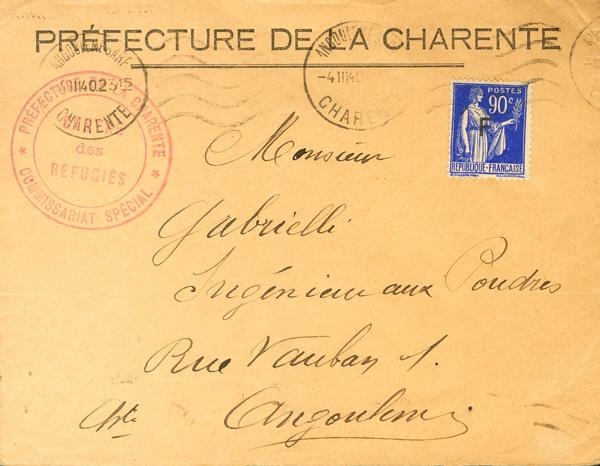 PRÉFECTURE DE LA CHARENTE
ANGOULEME GARE
-4 III 40
CHARENTE
PRÉFECTURE DE LA CHARENTE
des
RÉFUGIÉS
COMMISSARIAT SPÉCIAL
POSTES
90c
F
RÉPUBLIQUE-FRANÇAISE
Monsieur
Gabrielli
Ingénieur aux Poudres
Rue Vauban 1.
Angoulême